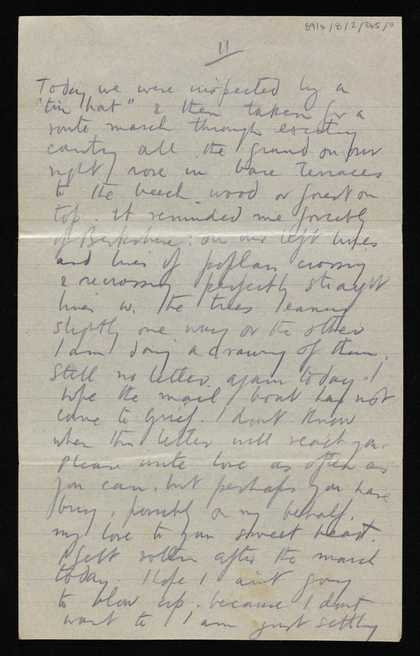 8916/8/2/245/0
11
Today we were inspected by a
"tin hat" & then taken for a
route march through exciting
country all the ground on our
right rose in bare Terraces
to the beech wood or forest on
top. It reminded me forcibly
of Berkshire: on our left lines
and lines of poplars crossing
& recrossing perfectly straight
lines w. the trees leaning
slightly one way or the other
I am doing a drawing of them.
Still no letter again today. I
hope the mail boat has not
come to grief. I dont know
when this letter will reach you.
please write love as often as
you can. but perhaps you have
busy, possibly on my behalf.
my love to you sweet heart.
I felt rotten after the march
today. I hope I aint going
to blow up. because I dont
want to I am just settling